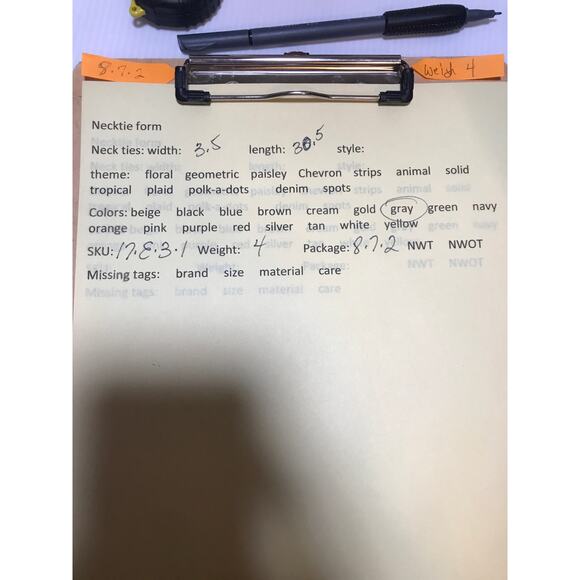 8.7.2
Weigh 4
Necktie form
Neck ties: width: 3.5 length: 30.5 style:
theme: floral geometric paisley Chevron strips animal solid
tropical plaid polk-a-dots denim spots
Colors: beige black blue brown cream gold gray green navy
orange pink purple red silver tan white yellow
SKU: 17.E.3.1 Weight: 4 Package: 8.7.2 NWT NWOT
Missing tags: brand size material care